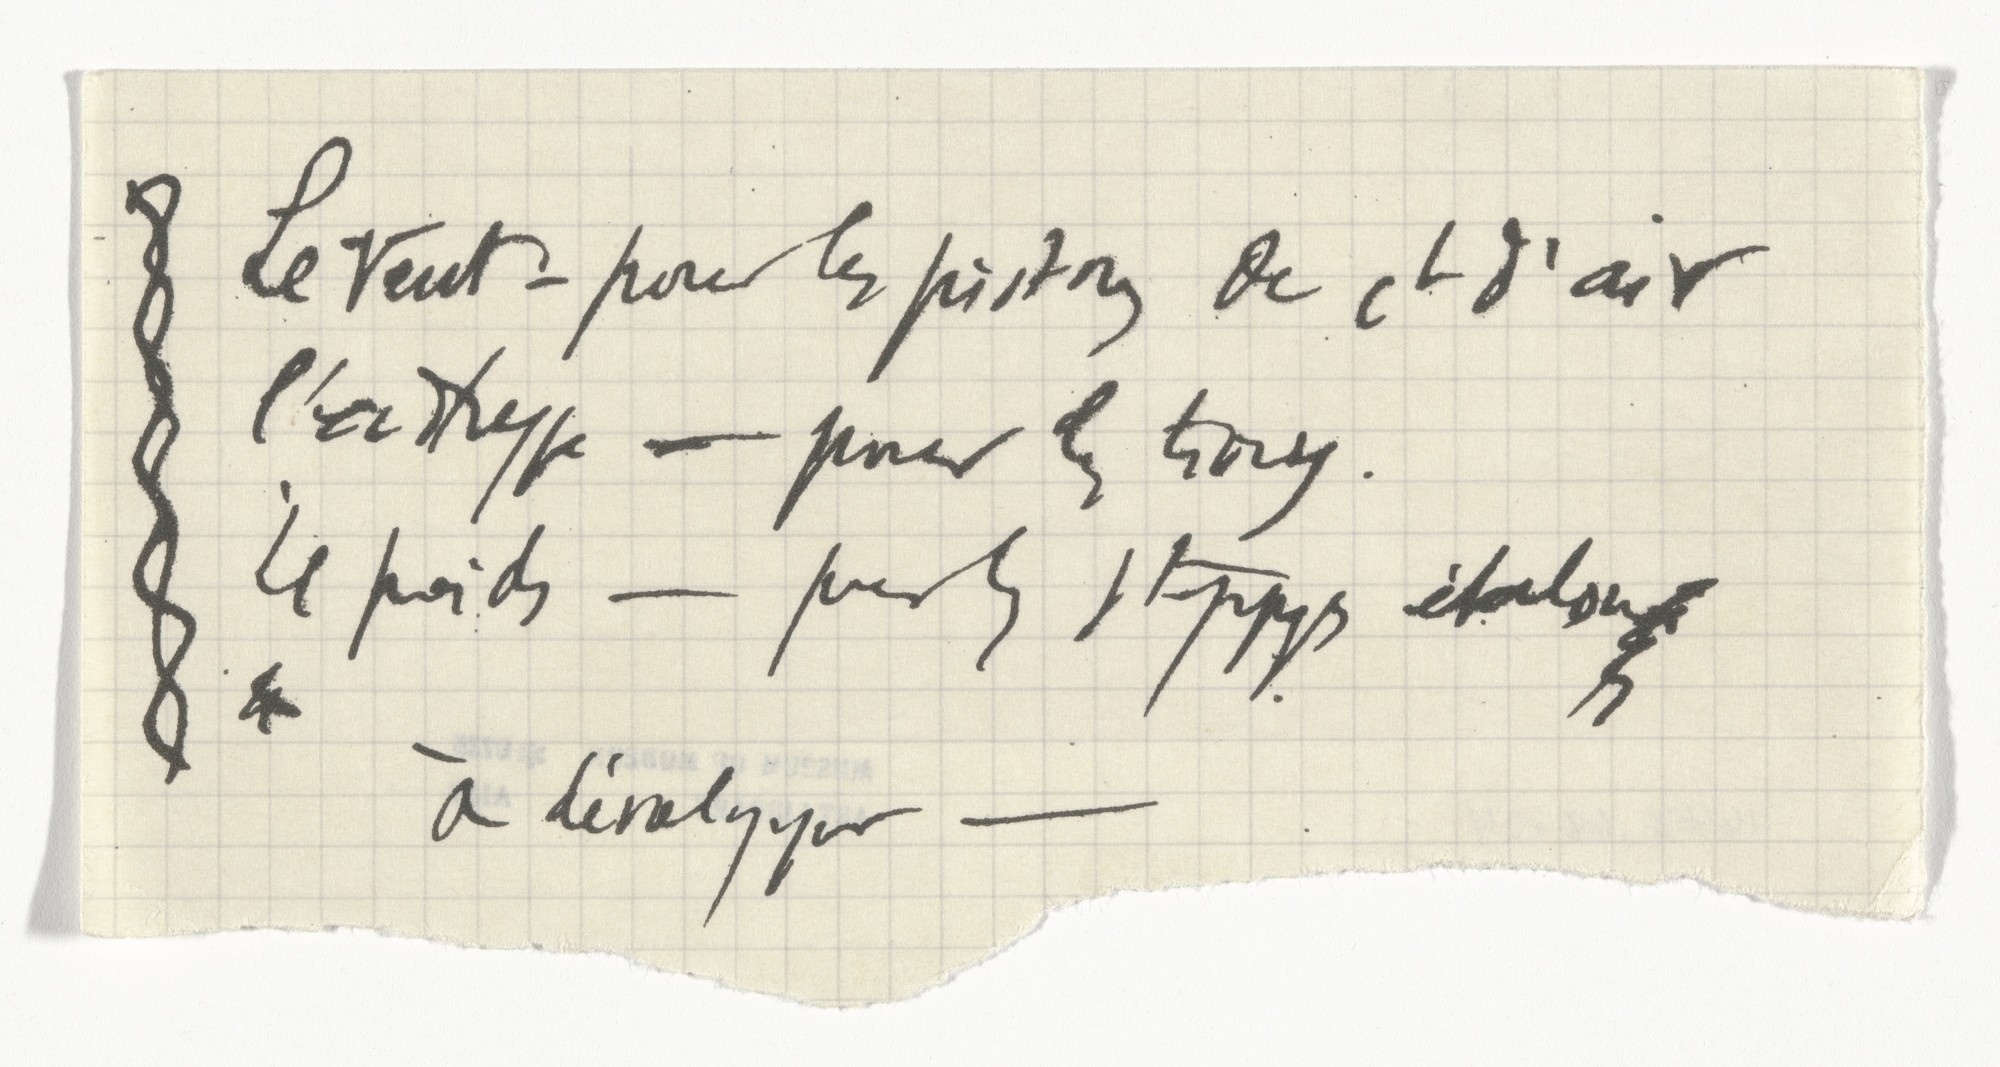 Le Vent – pour les pistons de ct d'air
l'adresse — pour les trous.
le poids — pour les stoppages étalons
*
à développer —